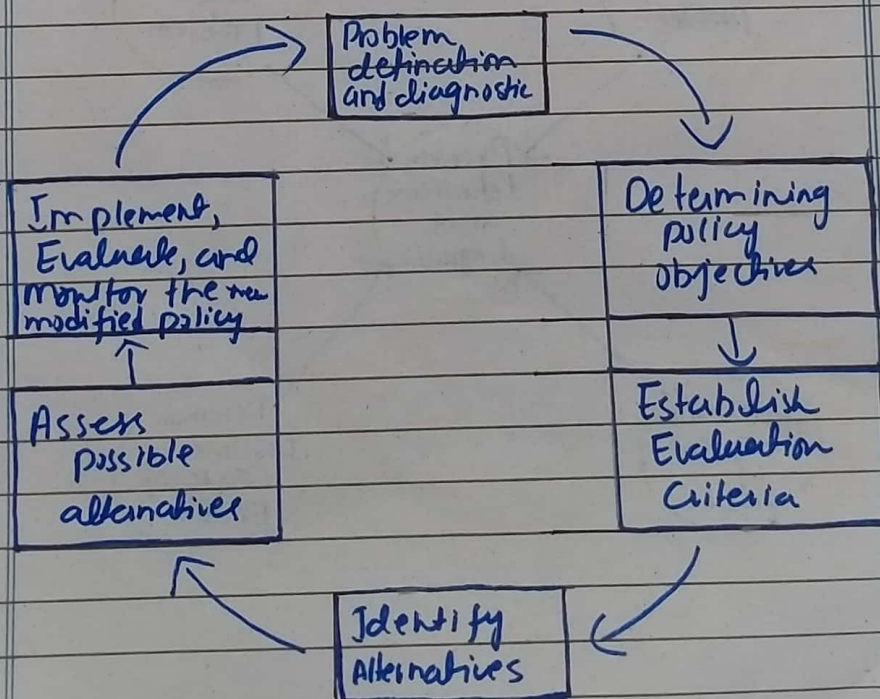 Problem
defination
and diagnostic
Determining
policy
objectives
Establish
Evaluation
Criteria
Identify
Alternatives
Assess
possible
alternatives
Implement,
Evaluate, and
monitor the new
modified policy